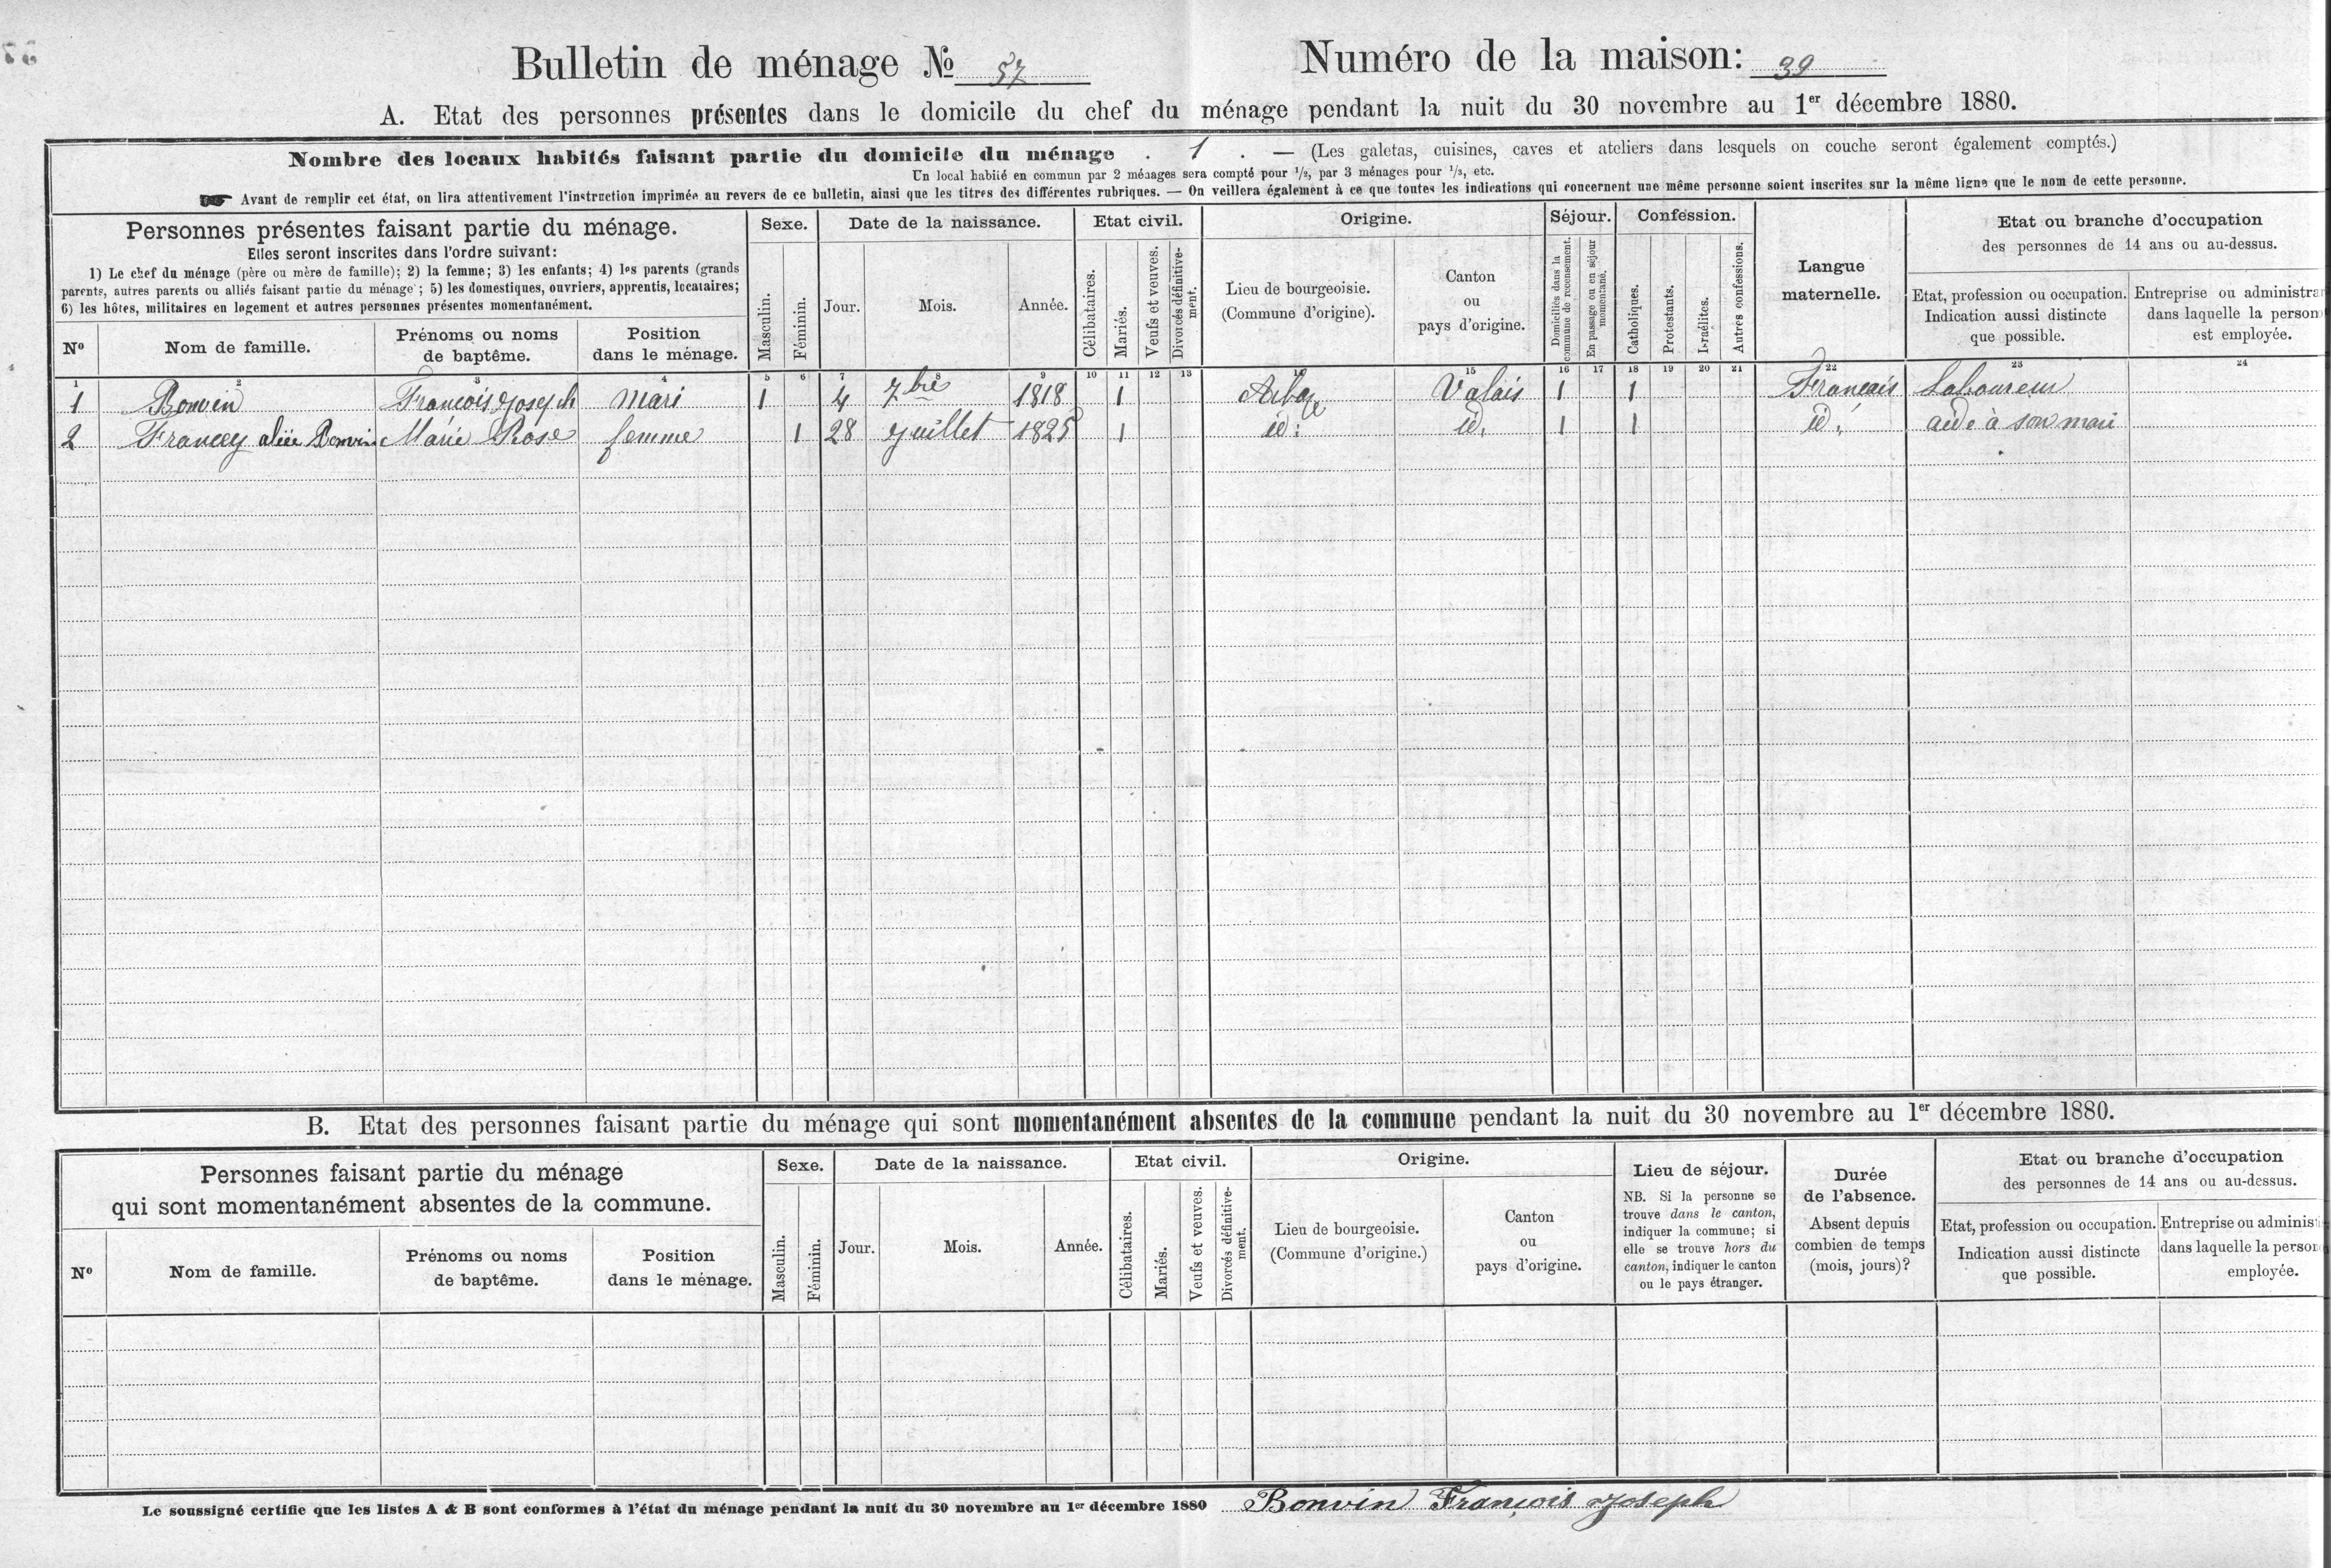 Bulletin de ménage № 57
Numéro de la maison: 39
A. Etat des personnes présentes dans le domicile du chef du ménage pendant la nuit du 30 novembre au 1er décembre 1880.
Nombre des locaux habités faisant partie du domicile du ménage . 1 . — (Les galetas, cuisines, caves et ateliers dans lesquels on couche seront également comptés.)
Un local habité en commun par 2 ménages sera compté pour 1/2, par 3 ménages pour 1/3, etc.
☛ Avant de remplir cet état, on lira attentivement l'instruction imprimée au revers de ce bulletin, ainsi que les titres des différentes rubriques. — On veillera également à ce que toutes les indications qui concernent une même personne soient inscrites sur la même ligne que le nom de cette personne.
Personnes présentes faisant partie du ménage.
Elles seront inscrites dans l'ordre suivant:
1) Le chef du ménage (père ou mère de famille); 2) la femme; 3) les enfants; 4) les parents (grands
parents, autres parents ou alliés faisant partie du ménage; 5) les domestiques, ouvriers, apprentis, locataires;
6) les hôtes, militaires en logement et autres personnes présentes momentanément.
No Nom de famille. Prénoms ou noms de baptême. Position dans le ménage.
Sexe. Masculin. Féminin.
Date de la naissance. Jour. Mois. Année.
Etat civil. Célibataires. Mariés. Veufs et veuves. Divorcés définitive-ment.
Origine. Lieu de bourgeoisie. (Commune d'origine). Canton ou pays d'origine.
Séjour. Domiciliés dans la commune de recensement. En passage ou en séjour momentané.
Confession. Catholiques. Protestants. Israélites. Autres confessions.
Langue maternelle.
Etat ou branche d'occupation
des personnes de 14 ans ou au-dessus.
Etat, profession ou occupation. Indication aussi distincte que possible.
Entreprise ou administra dans laquelle la person est employée.
1 2 3 4 5 6 7 8 9 10 11 12 13 14 15 16 17 18 19 20 21 22 23 24
1 Bonvin François Joseph Mari 1 4 7bre 1818 1 Arbaz Valais 1 1 Français Laboureur
2 Francey aliée Bonvin Marie Rose femme 1 28 Juillet 1825 1 id: id. 1 1 id. aide à son mari
B. Etat des personnes faisant partie du ménage qui sont momentanément absentes de la commune pendant la nuit du 30 novembre au 1er décembre 1880.
Personnes faisant partie du ménage
qui sont momentanément absentes de la commune.
No Nom de famille. Prénoms ou noms de baptême. Position dans le ménage.
Sexe. Masculin. Féminin.
Date de la naissance. Jour. Mois. Année.
Etat civil. Célibataires. Mariés. Veufs et veuves. Divorcés définitive-ment.
Origine. Lieu de bourgeoisie. (Commune d'origine.) Canton ou pays d'origine.
Lieu de séjour.
NB. Si la personne se
trouve dans le canton,
indiquer la commune; si
elle se trouve hors du
canton, indiquer le canton
ou le pays étranger.
Durée
de l'absence.
Absent depuis
combien de temps
(mois, jours)?
Etat ou branche d'occupation
des personnes de 14 ans ou au-dessus.
Etat, profession ou occupation. Indication aussi distincte que possible.
Entreprise ou adminis dans laquelle la person employée.
Le soussigné certifie que les listes A & B sont conformes à l'état du ménage pendant la nuit du 30 novembre au 1er décembre 1880 Bonvin François Joseph